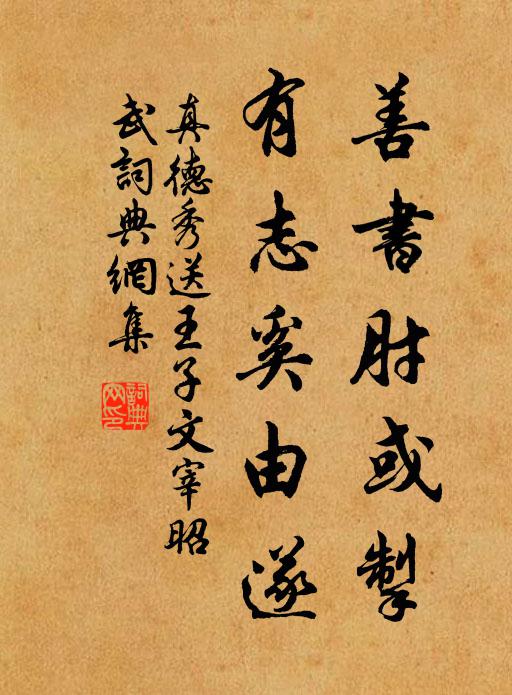 善書肘或掣
有志奚由遂
真德秀送王子文宰昭
武詞典網集
詞典
网印